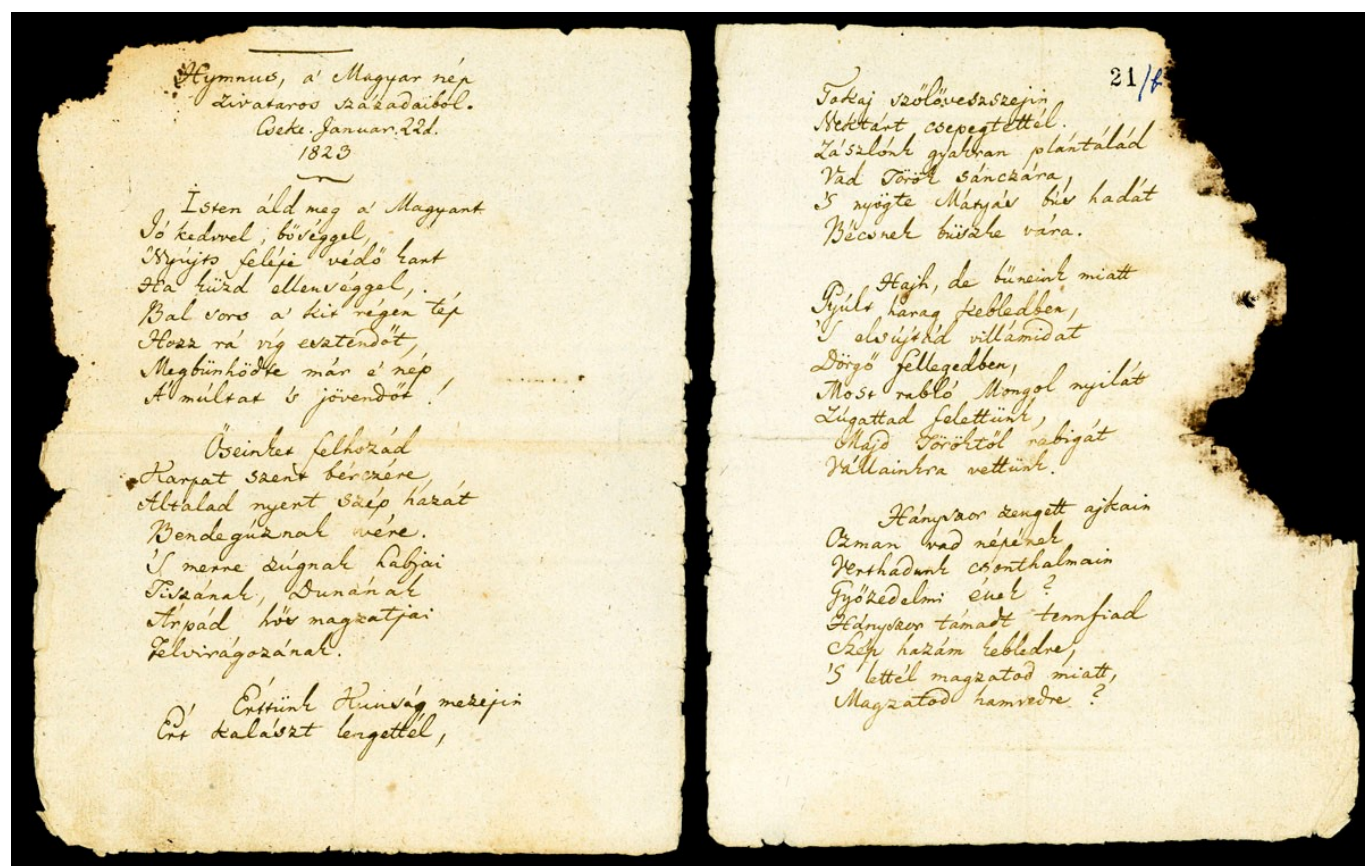 Hymnus, a' Magyar nép
Zivataros századaiból.
Cseke. Januar. 22d.
1823
Isten áld meg a' Magyart
Jó kedvvel, bőséggel,
Nyújts feléje védő kart
Ha küzd ellenséggel,
Bal sors a' kit régen tép
Hozz rá víg esztendőt,
Megbünhödte már e' nép
A' múltat 's jövendőt!
Őseinket felhozád
Kárpát szent bérczére
Általad nyert szép hazát
Bendegúznak vére.
'S merre zúgnak habjai
Tiszának, Dunának
Árpád hős magzatjai
Felvirágozának.
Értünk Kunság mezejin
Ért kalászt lengettél,
21/b
Tokaj szőlővesszejin
Nektárt csepegtettél.
Zászlónk gyakran plántálád
Vad Török sánczára,
'S nyögte Mátyás bús hadát
Bécsnek büszke vára.
Hajh, de büneink miatt
Gyúlt harag kebledben,
'S elsújtád villámidat
Dörgő fellegedben,
Most rabló Mongol nyilát
Zúgattad felettünk,
Majd Töröktől rabigát
Vállainkra vettünk.
Hányszor zengett ajkain
Ozman vad népének
Vert hadunk csonthalmain
Győzedelmi ének?
Hányszor támadt tennfiad
Szép hazám kebledre,
'S lettél magzatod miatt,
Magzatod hamvedre?